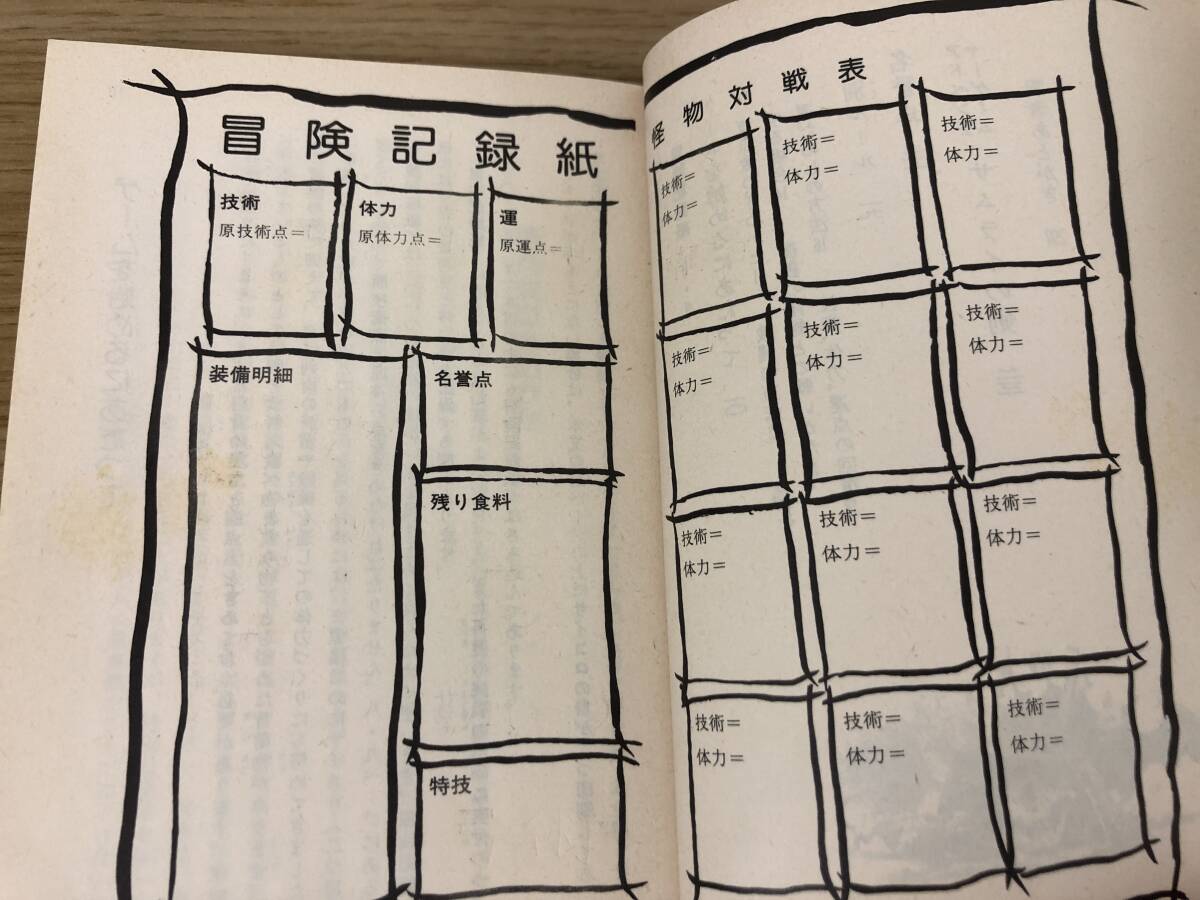 冒険記録紙
技術
原技術点=
体力
原体力点=
運
原運点=
装備明細
名誉点
残り食料
特技
怪物対戦表
技術=
体力=
技術=
体力=
技術=
体力=
技術=
体力=
技術=
体力=
技術=
体力=
技術=
体力=
技術=
体力=
技術=
体力=
技術=
体力=
技術=
体力=
技術=
体力=